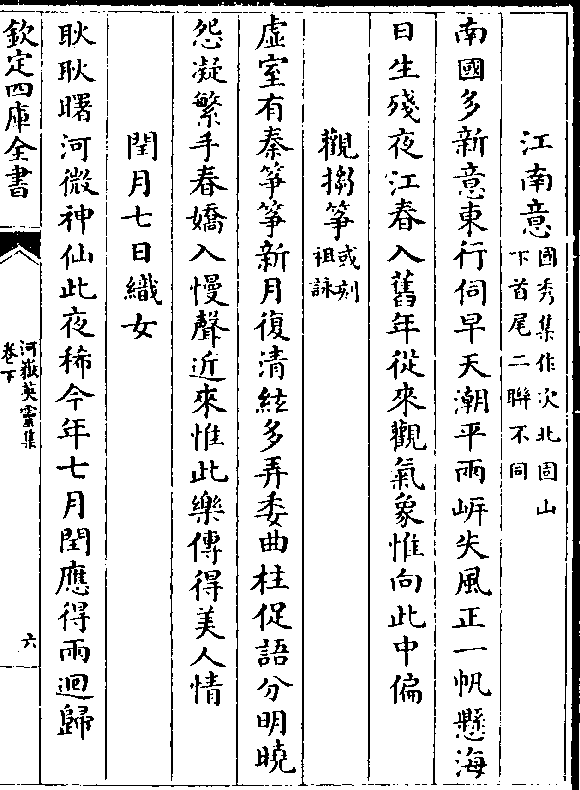 江南意國秀集作次北固山
下首尾二聯不同
南國多新意東行伺早天潮平兩岍失風正一帆懸海
日生殘夜江春入舊年從來觀氣象惟向此中偏
觀搊箏或刻
祖詠
虛室有秦箏箏新月復清絃多弄委曲柱促語分明曉
怨凝繁手春嬌入慢聲近來惟此樂傳得美人情
閏月七日織女
耿耿曙河微神仙此夜稀今年七月閏應得兩迴歸
欽定四庫全書
河嶽英靈集
卷下
六